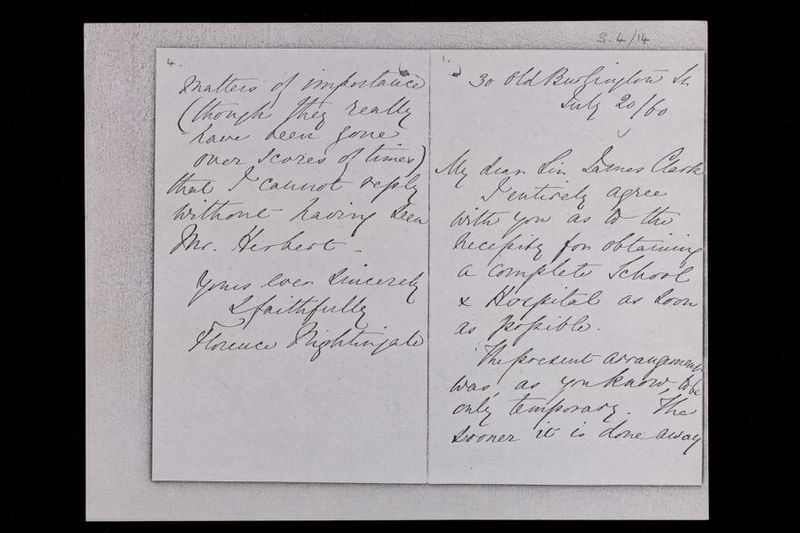 S.4/14
4.
matters of importance
(though they really
have been gone
over scores of times)
that I cannot reply
without having seen
Mr. Herbert.
Yours ever sincerely
& faithfully
Florence Nightingale
1.
30 Old Burlington St
July 20/60
My dear Sir James Clark
I entirely agree
with you as to the
necessity for obtaining
a complete School
& Hospital as soon
as possible.
The present arrangement
was, as you know, to be
only temporary. The
sooner it is done away